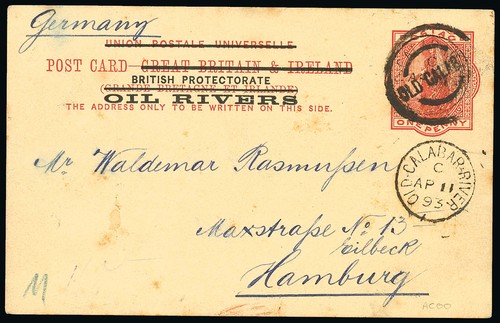 Germany
UNION POSTALE UNIVERSELLE
POST CARD GREAT BRITAIN & IRELAND
BRITISH PROTECTORATE
(GRANDE BRETAGNE ET IRLANDE)
OIL RIVERS
THE ADDRESS ONLY TO BE WRITTEN ON THIS SIDE.
POSTAGE
OLD CALABAR
ONE PENNY
OLD-CALABAR-RIVER
C
AP 11
93
Mr Waldemar Rasmußen
Maxstraße No 13
Eilbeck
Hamburg